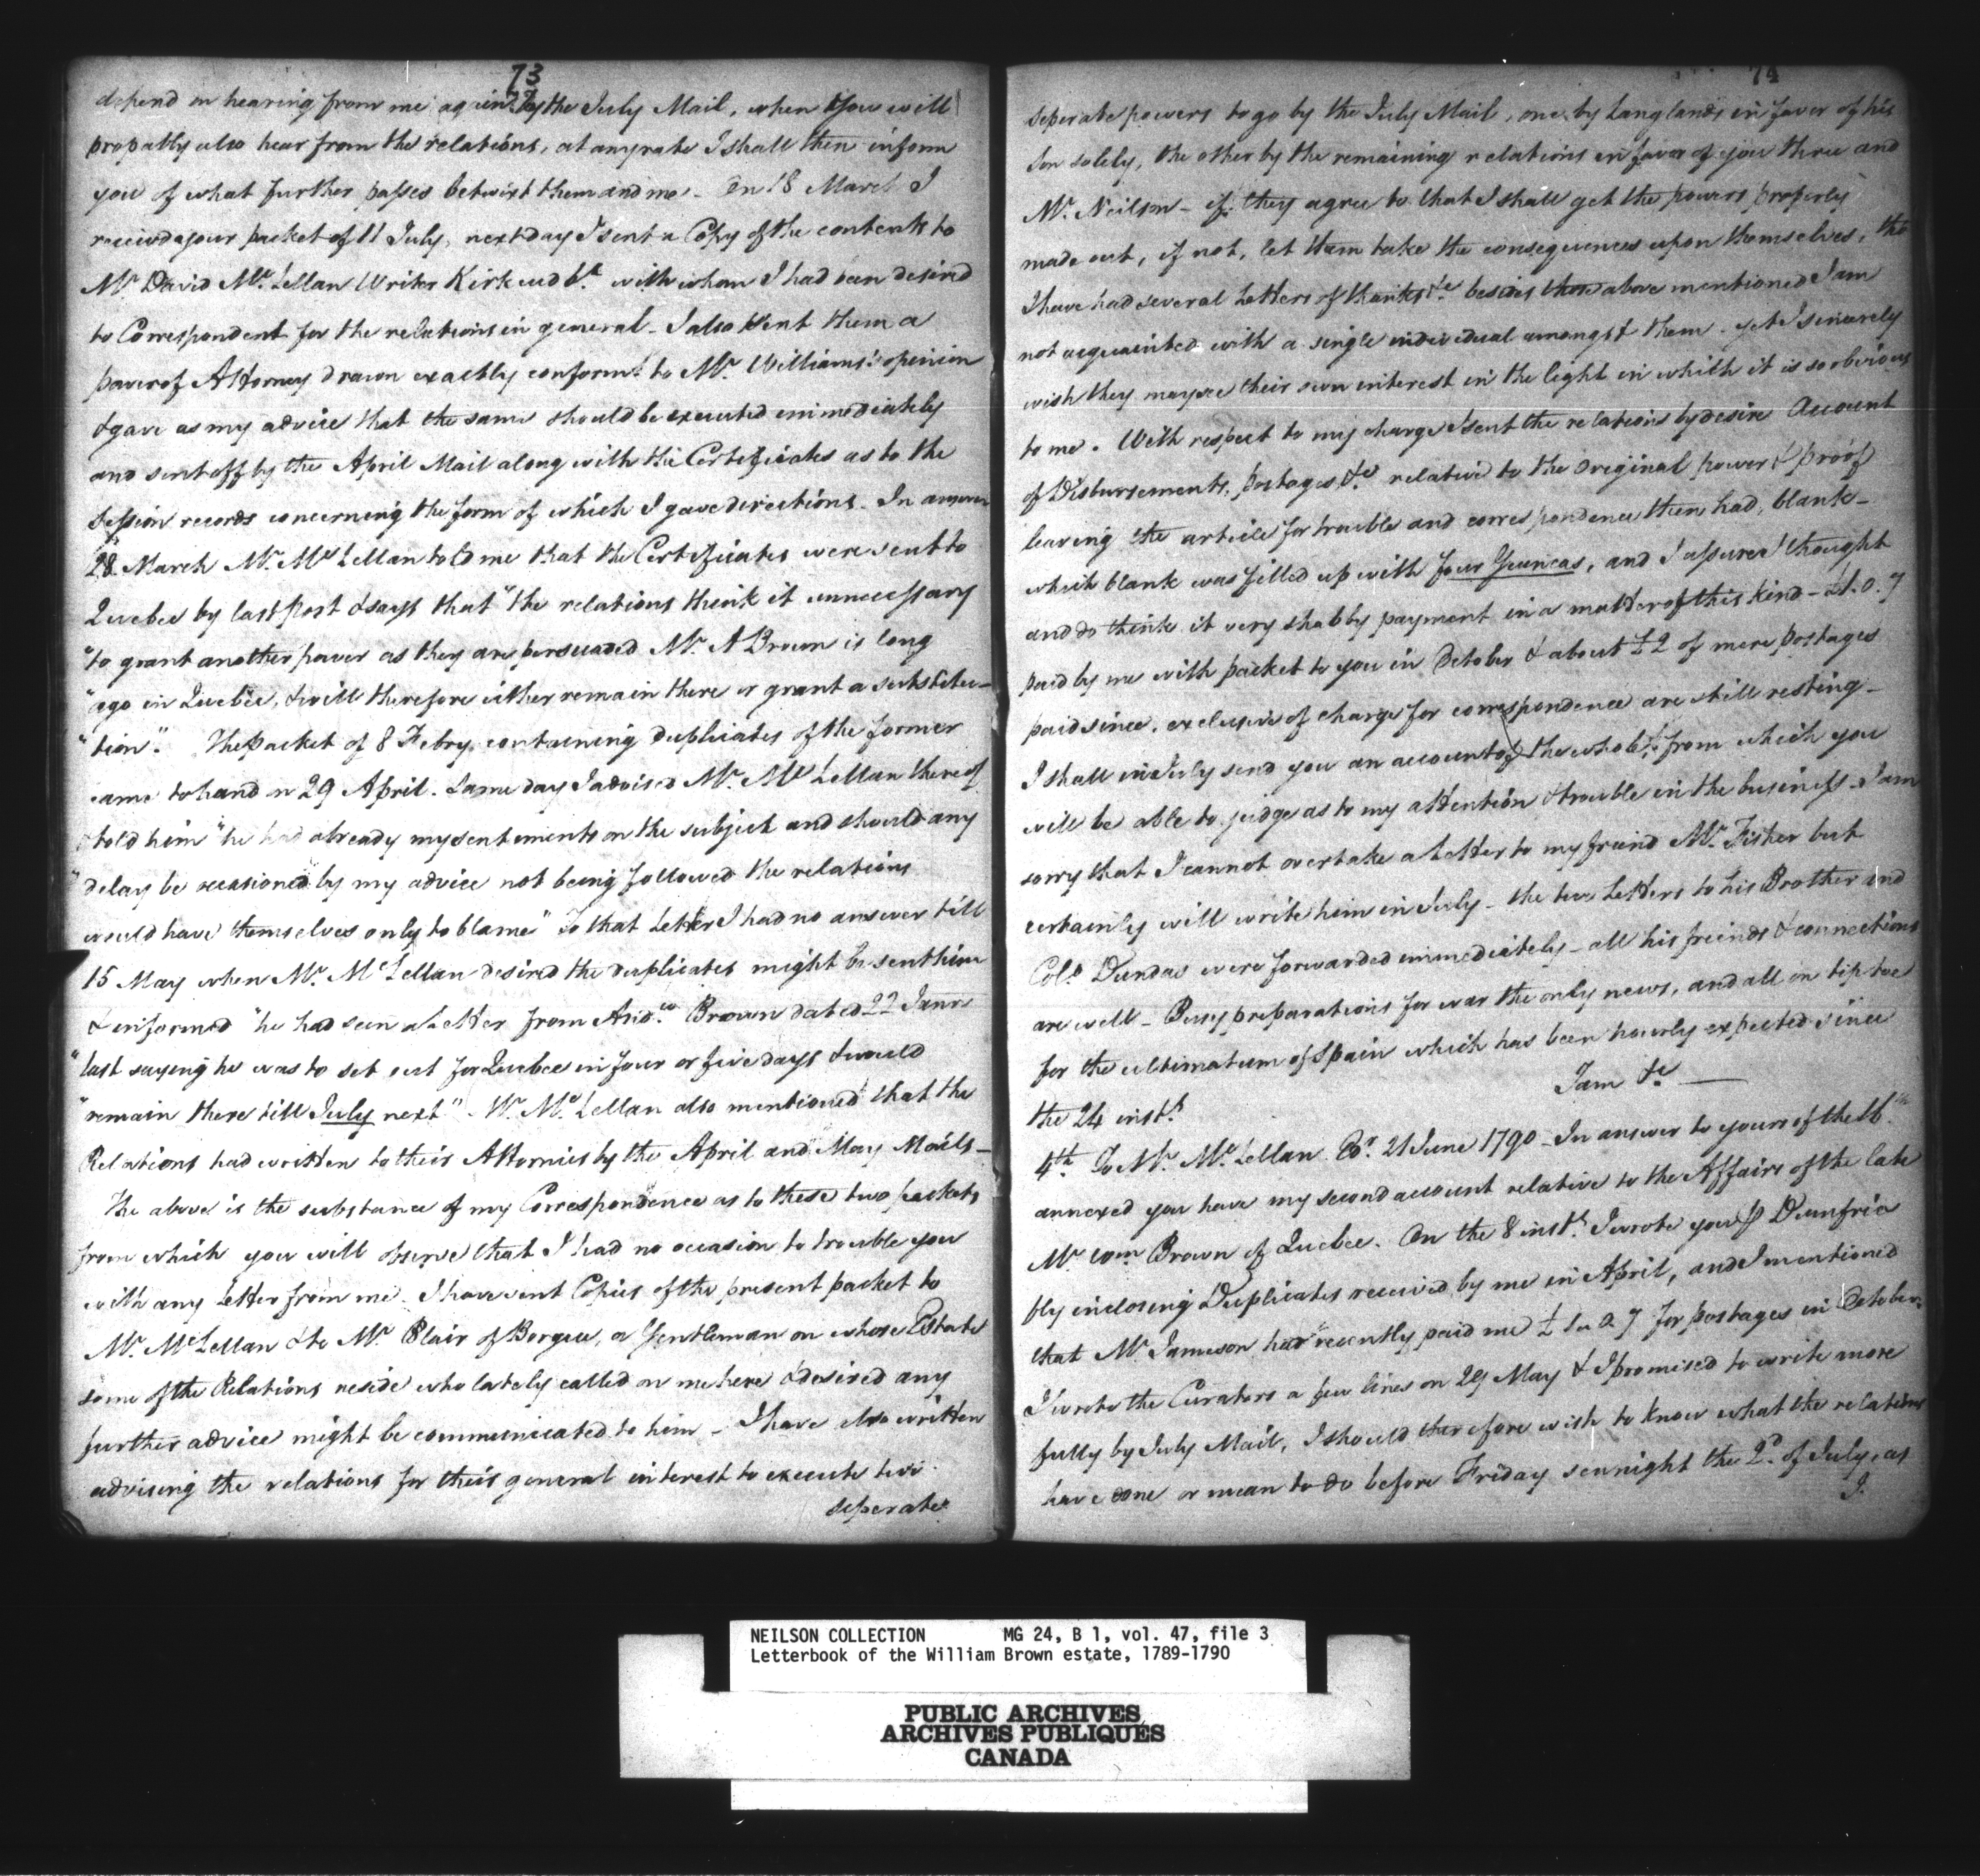 73
depend on hearing from me again by the July Mail, when you will
propably also hear from the relations, at any rate I shall then inform
you of what further passes betwixt them and me. On 18 March I
received your packet of 11 July, next day I sent a Copy of the contents to
Mr. David Mc.Lellan Writer Kirkcudbt. with whom I had been desired
to Correspondent for the relations in general - I also sent them a
power of Attorney drawn exactly conformt. to Mr. Williams's opinion
& gave as my advice that the same should be executed immediately
and sent off by the April Mail along with the Certificates as to the
Session records concerning the form of which I gave directions. In answer
28 March Mr. Mc.Lellan told me that the Certificates were sent to
Quebec by last post & says that "the relations think it unnecessary
"to grant another power as they are persuaded Mr. A Brown is long
"ago in Quebec, & will therefore either remain there or grant a substitu-
"tion". The Packet of 8 Febry. containing Duplicates of the former
came to hand on 29 April. Same day I advised Mr. Mc Lellan thereof
& told him "he had already my sentiments on the subject and should any
"delay be occasioned by my advice not being followed the relations
would have themselves only to blame" To that Letter I had no answer till
15 May when Mr. Mc Lellan desired the duplicates might be sent him
& informed "he had seen a Letter from Andw. Brown dated 22 Janry
"last saying he was to set out for Quebec in four or five days & would
"remain there till July next" Mr. Mc.Lellan also mentioned that the
Relations had written to their Attornies by the April and May Mails -
The above is the substance of my Correspondence as to these two packets
from which you will observe that I had no occasion to trouble you
with any Letter from me. I have sent Copies of the present packet to
Mr. McLellan & to Mr. Blair of Borgue, a Gentleman on whose Estate
some of the Relations reside who lately called on me here & desired any
further advice might be communicated to him - I have also written
advising the relations for their general interest to execute two
seperate
74
seperate powers to go by the July Mail, one by Langlands in favor of his
son solely, the other by the remaining relations in favor of you three and
Mr. Neilson - if they agree to that I shall get the powers properly
made out, if not, let them take the consequences upon themselves, tho
I have had several Letters of thanks &c besides those above mentioned I am
not acquainted with a single individual amongst them - yet I sincerely
wish they may see their own interest in the light in which it is so obvious
to me. With respect to my charge I sent the relations by desire Account
of Disbursements, postages &c relative to the Original power & proof
leaving the article for trouble and correspondence then had, blank -
which blank was filled up with four Guineas, and I assured thought
and do think it very shabby payment in a matter of this kind - £1.0.7
paid by me with packet to you in October & about £2 of mere postages
paid since, exclusive of charge for correspondence are still resting -
I shall in July send you an account of the whole, from which you
will be able to judge as to my attention & trouble in the business - I am
sorry that I cannot overtake a Letter to my friend Mr. Fisher but
certainly will write him in July - the two Letters to his Brother and
Colo. Dundas were forwarded immediately - all his friends & connections
are well - Busy preparations for war the only news, and all on tiptoe
for the ultimatum of Spain which has been hourly expected since
the 24 instt.
I am &c
4th. To Mr. Mc.Lellan. Er. 21 June 1790 - In answer to yours of the 16th.
annexed you have my second account relative to the Affairs of the late
Mr. Wm. Brown of Quebec. On the 8 instt. I wrote you P Dumfries
fly inclosing Duplicates received by me in April, and I mentioned
that Mr. Jameson had recently paid me £1 " 0.7 for postages in October.
I wrote the Curators a few lines on 29 May & I promised to write more
fully by July Mail, I should therefore wish to know what the relations
have done or mean to do before Friday sennight the 2d. of July, as
I.
NEILSON COLLECTION MG 24, B 1, vol. 47, file 3
Letterbook of the William Brown estate, 1789-1790
PUBLIC ARCHIVES
ARCHIVES PUBLIQUES
CANADA